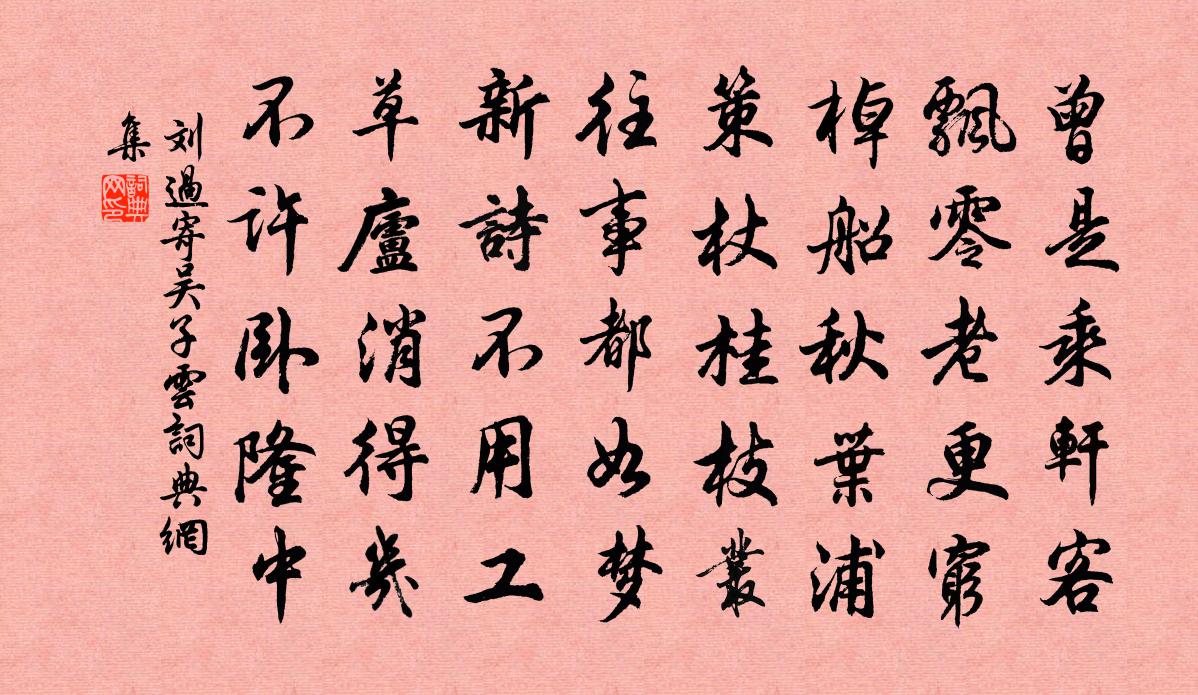 曾是乘軒客
飄零老更窮
棹船秋葉浦
策杖桂枝叢
往事都如梦
新詩不用工
草廬消得幾
不許卧隆中
刘過寄吴子雲詞典網
集
詞典
网印